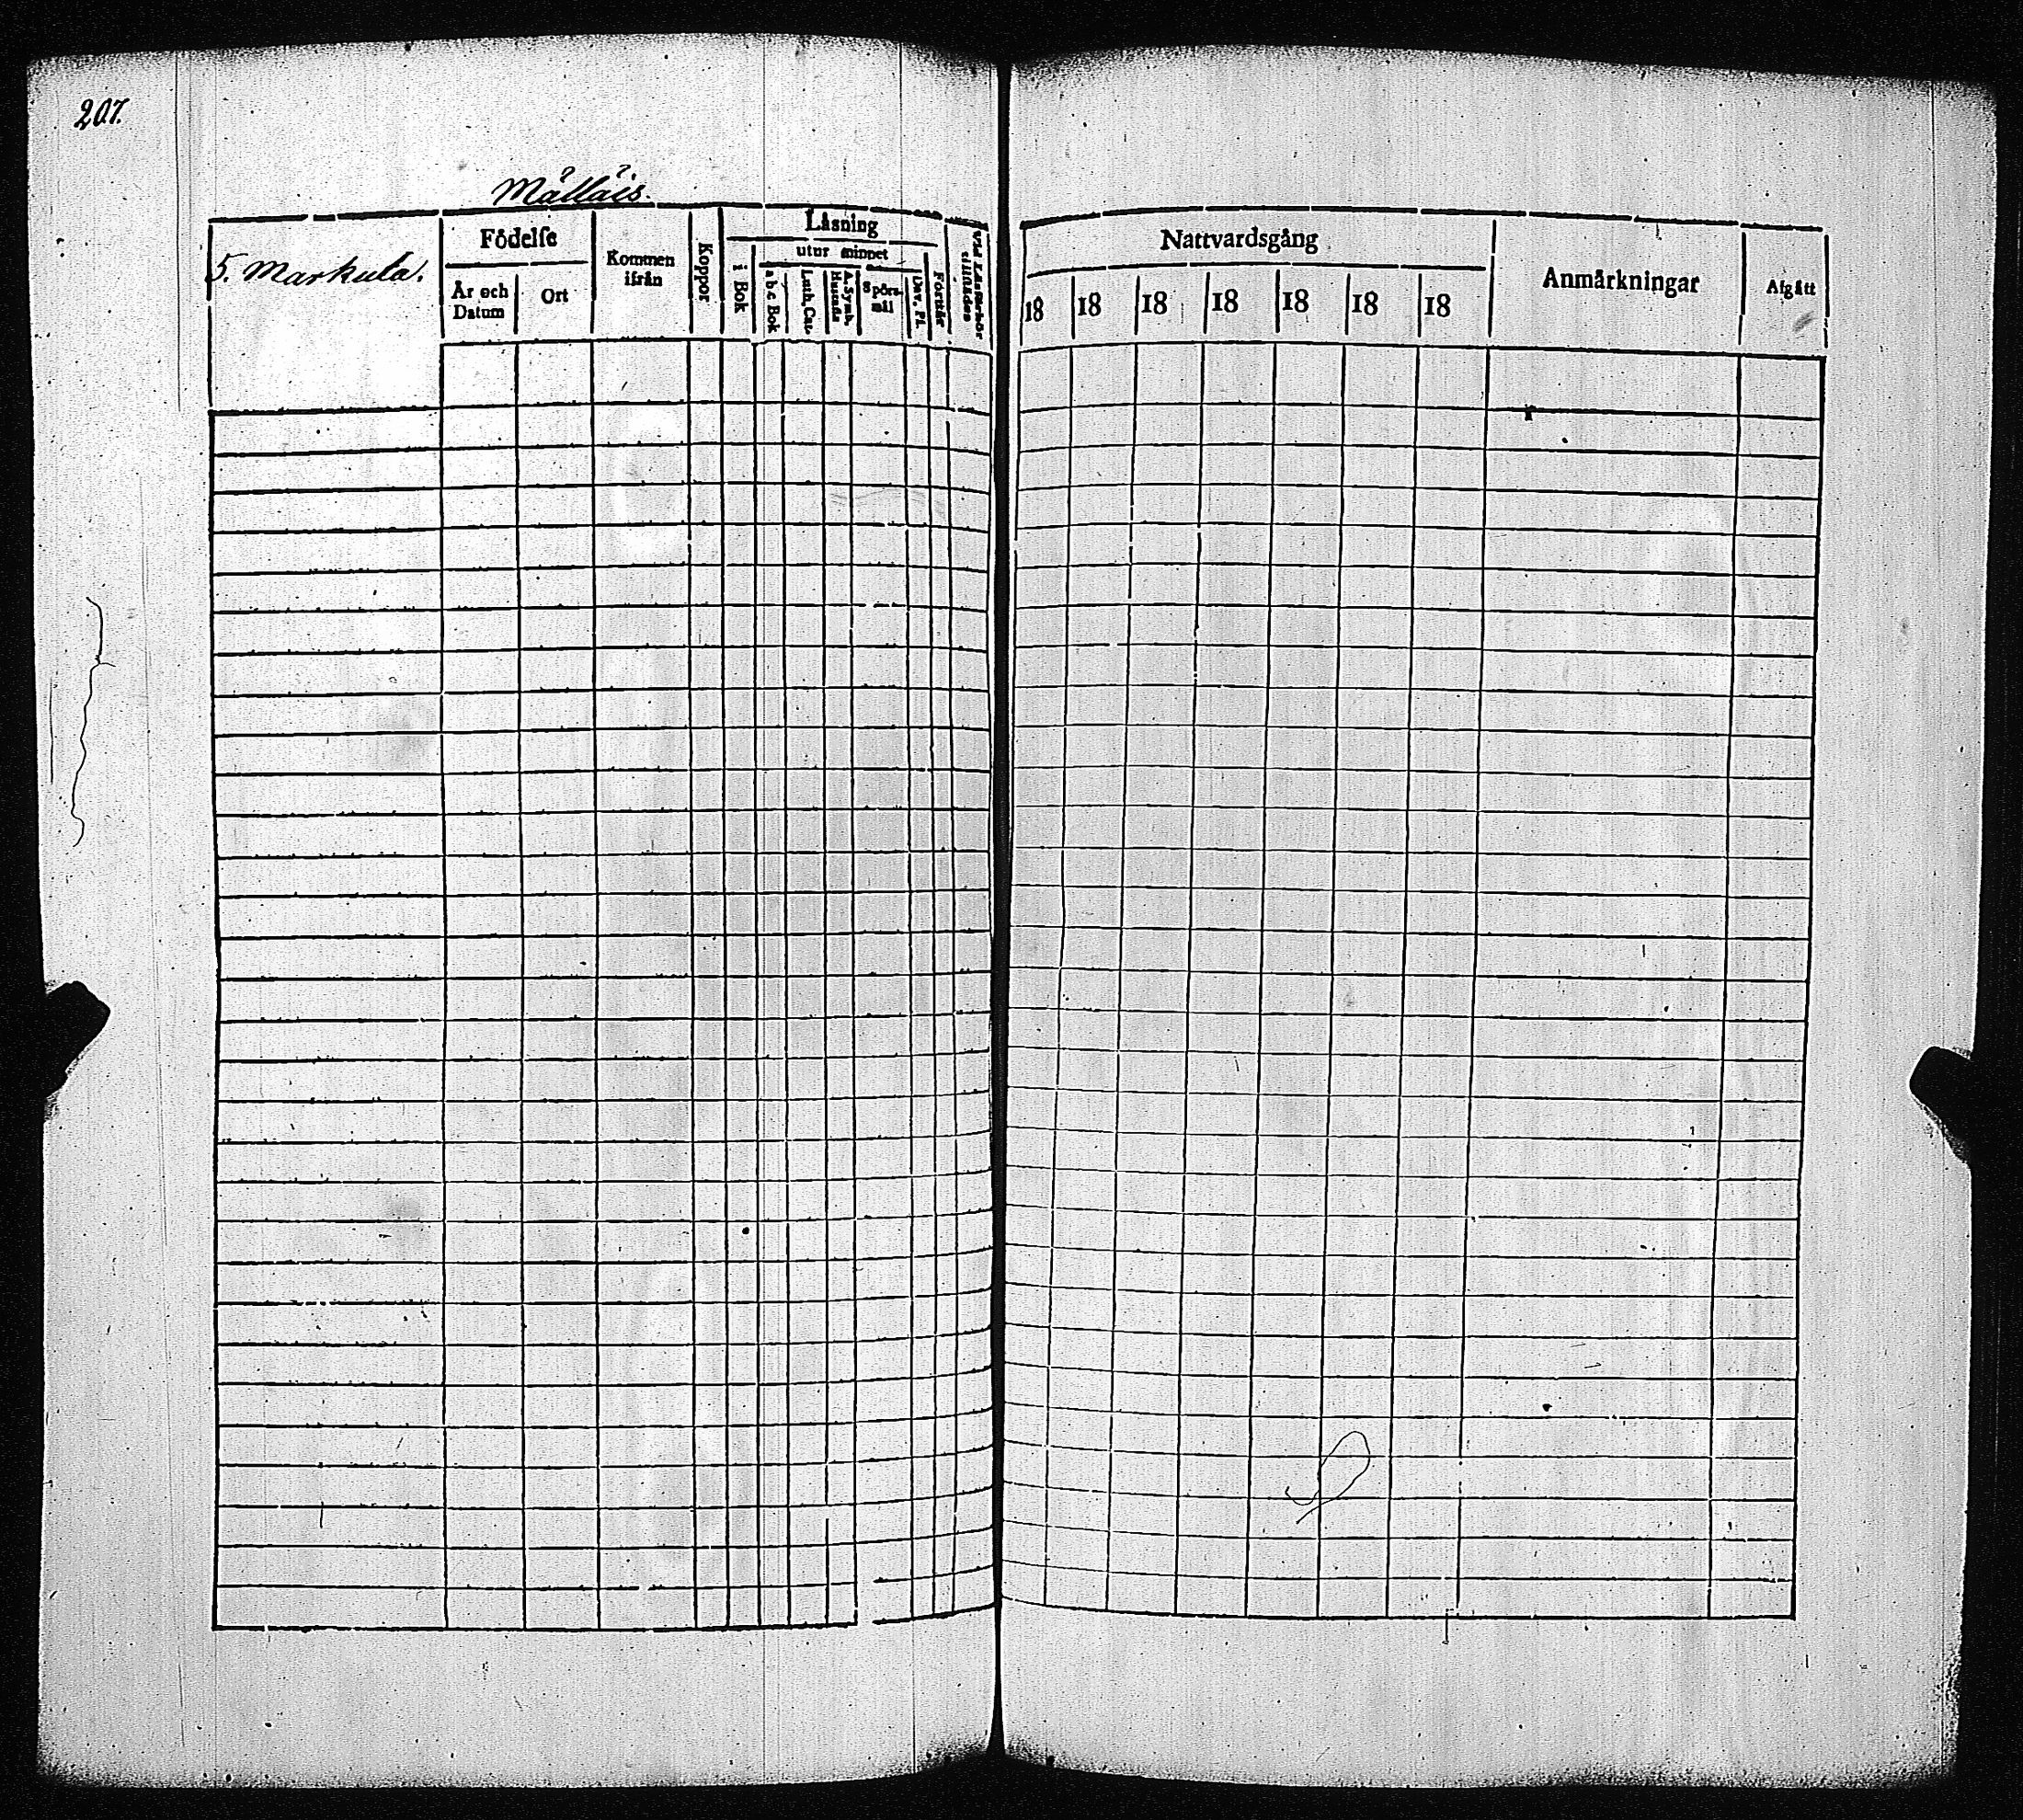 207.
Mälläis.
5. Markula.
Födelse
År och Datum
Ort
Kommen ifrån
Koppor
Läsning
i Bok
utur minnet
a b c Bok
Luth. Cat.
A. Symb. Hustafla
Spörsmål
Dav. Ps.
Förstår
Vid Läsförhör tillstädes
Nattvardsgång
18 18 18 18 18 18 18
Anmärkningar
Afgått